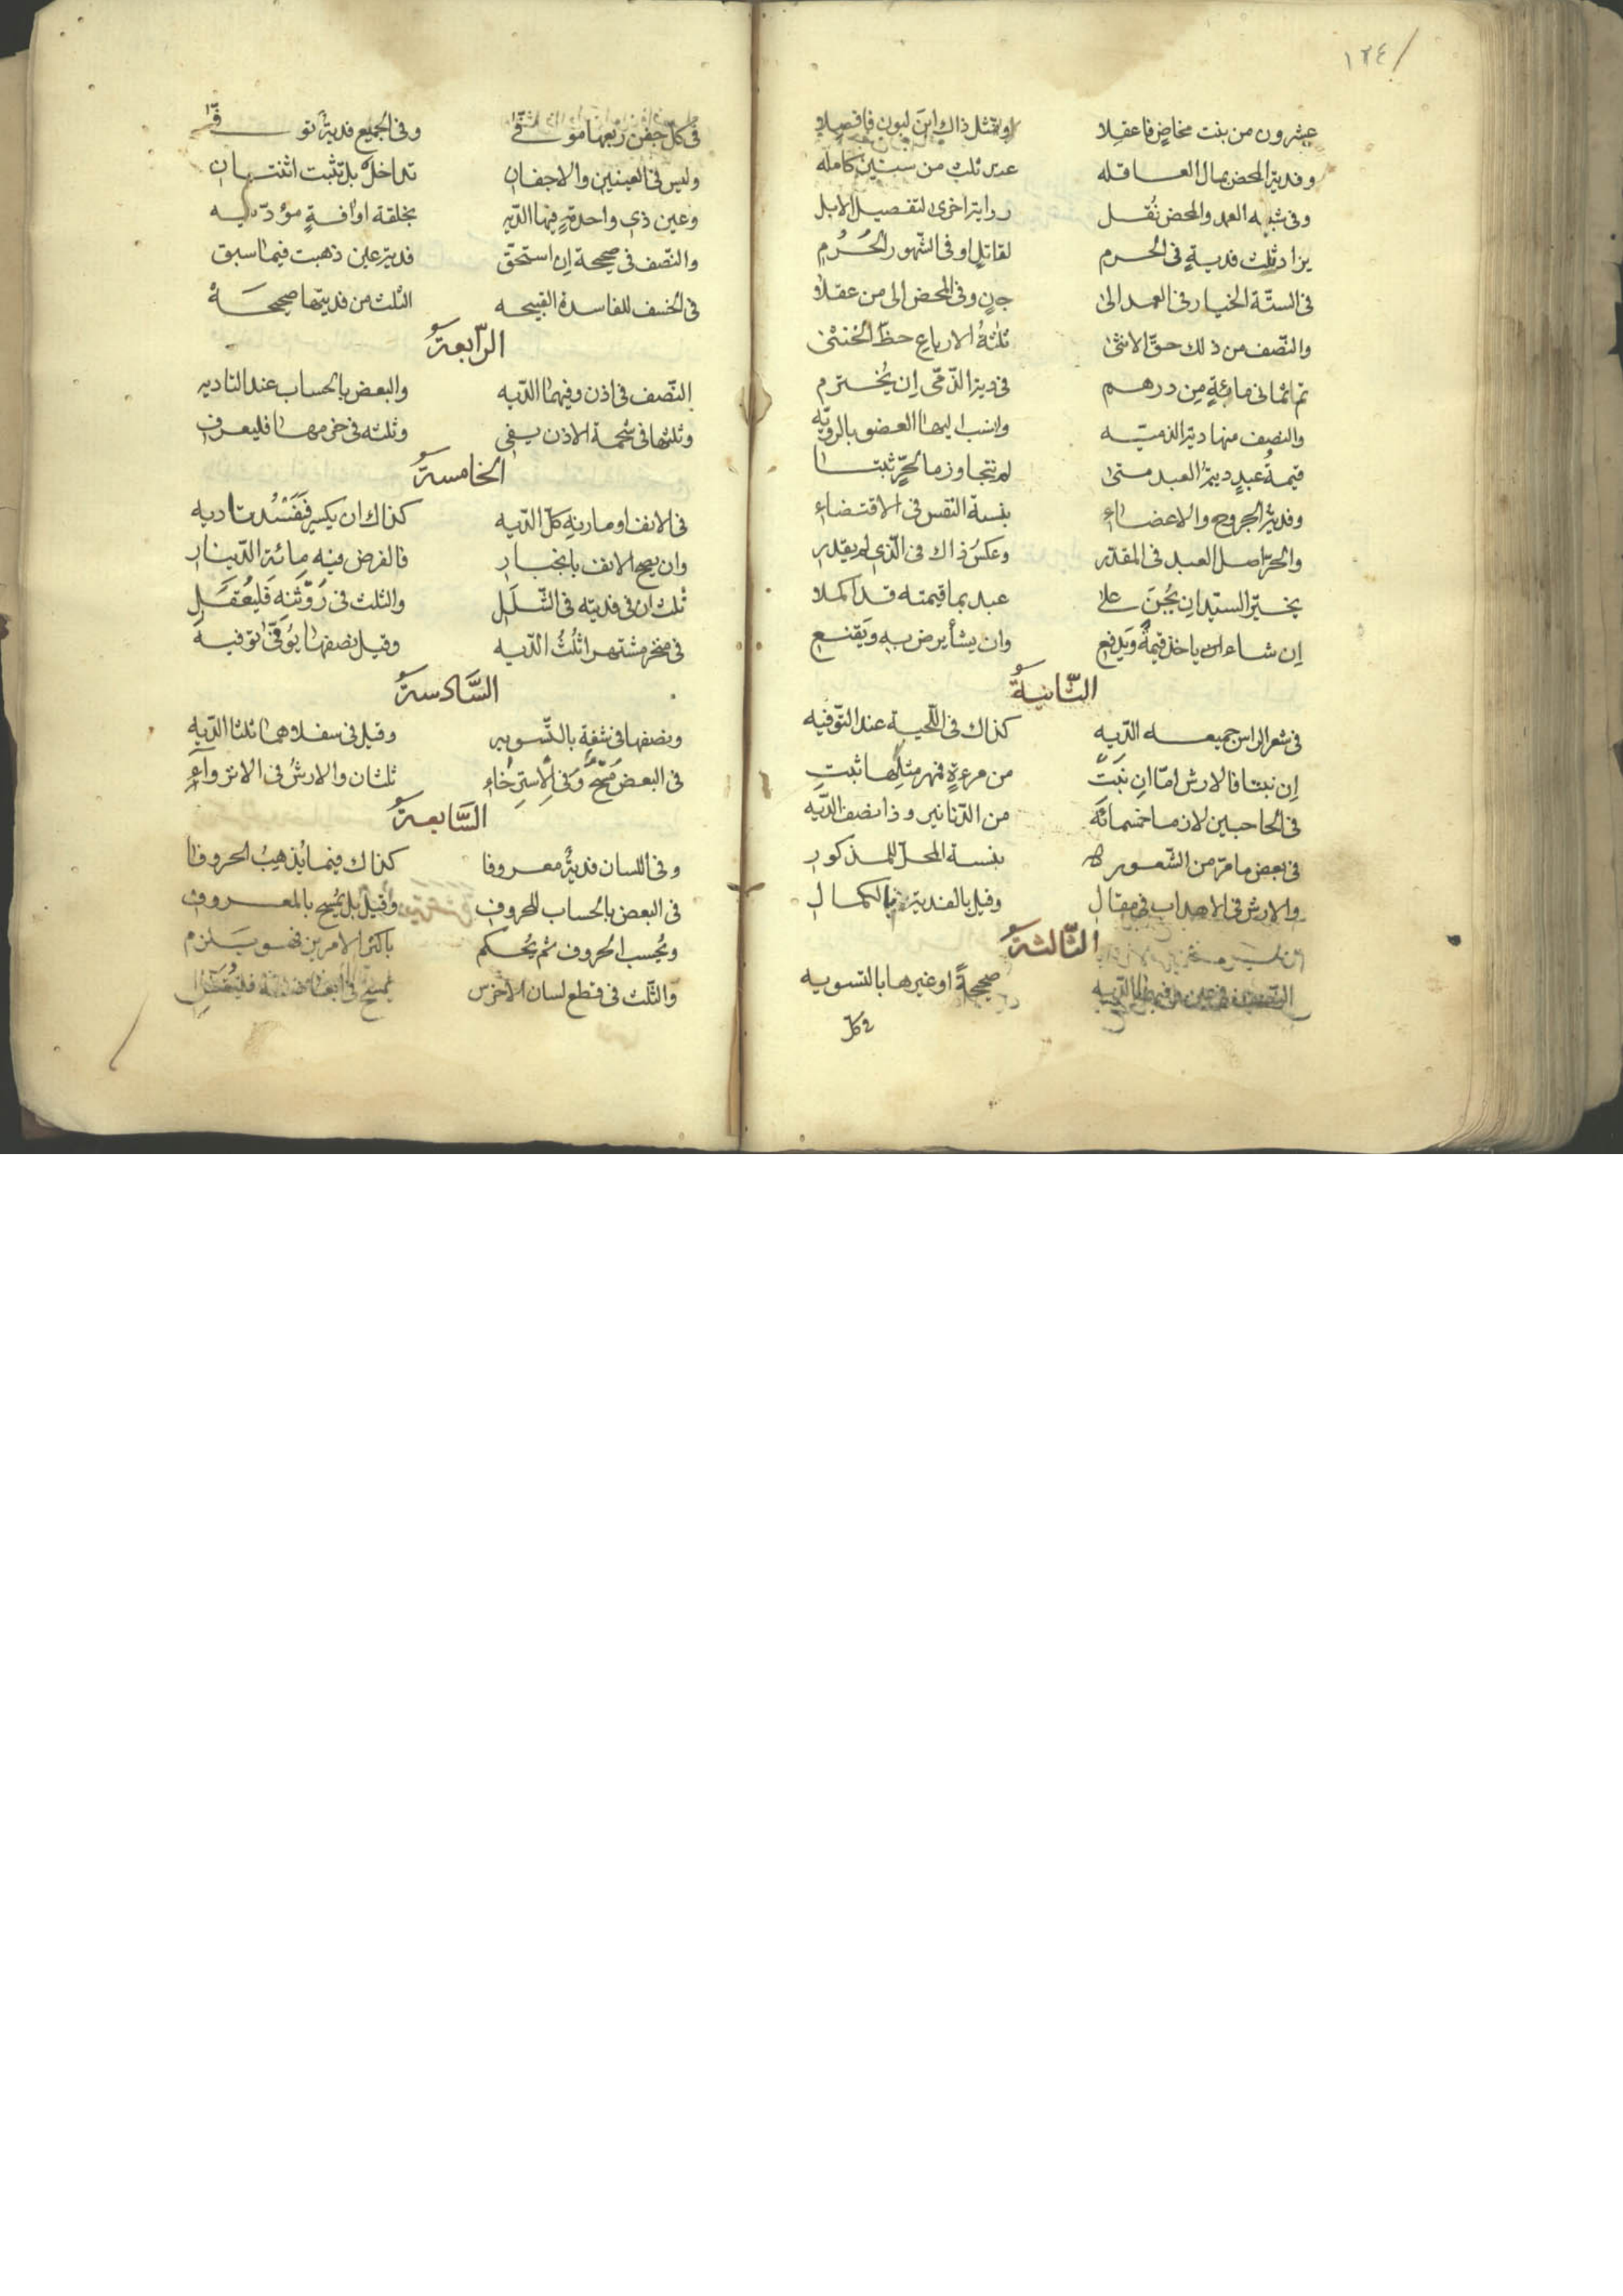 ١٢٤
عشرون من بنت مخاض فاعقلا ومثل ذاك ابن لبون فافصلا
وفدية المحض بمال العاقله عدى ثلث من سنين كامله
وفى شبه العمد والمحض نُقل رواية اخرى لتفصيل الابل
يزاد ثلث فدية فى الحرم لقاتل او فى الشهور الحُرُم
فى الستّة الخيار فى العمد الى جانٍ وفى المحض الى من عقلا
والنّصف من ذلك حقّ الانثى ثلثة الارباع حظّ الخنثى
ثم ثمانى مائةٍ من درهم فى دية الذّمّى إن يُخترم
والنصف منها دية الذميّه وانسب اليها العضو بالرويّه
قيمةُ عبدٍ دية العبد متى لم تتجاوز ما لحرّ ثبتا
وفدية الجروح والاعضاء بنسبة النفس فى الاقتضاء
والحرّ اصل العبد فى المقدّر وعكسُ ذاك فى الّذى لم يقدر
يخيّر السيّد ان يُجنَ على عبد بما قيمته قد اكملا
إن شاء ان ياخذ قيمةً ويَدفع وان يشأ يرض به ويَقنع
الثّانيةُ
فى شعر الراس جميعه الديه كذاك فى اللّحية عند التّوفيه
إن نبتا فالارش امّا ان نَبَت من مرءةٍ فمهر مثلِها ثبت
فى الحاجبين لازما خمسمائه من الدّنانير وذا نصف الدّيه
فى بعض ما مرّ من الشّعور بنسبة المحلّ للمذكور
والارش فى الاهداب فى مقال وقيل بالفدية بالكمال
الثّالثةُ
النصف فى عين وفيهما الديه صحيحةً او غيرها بالتسويه
فى كلّ
فى كلّ جفن ربعها موفّى وفى الجميع فديةٌ توفّى
وليس فى العينين والاجفان تداخلٌ بل تثبت اثنتان
وعين ذى واحدةٍ فيها الدّيه بخلقة او افةٍ مؤدّيه
والنّصف فى صحيحة إن استحقّ فدية عين ذهبت فيما سبق
فى الخسف للفاسدة القبيحه الثلث من فديتها صحيحَهْ
الرّابعةُ
النّصف فى اذن وفيهما الدّيه والبعض بالحساب عند التاديه
وثلثها فى شحمة الاذن يفى وثلثه فى خرمها فليعرف
الخامسةُ
فى الانف او مارنه كلّ الدّيه كذاك ان يكسر فَفَسْدت اديه
وان يصح الانف بانجبار فالفرض فيه مائة الدّينار
ثلثان فى فديته فى الشَّلَل والثلث فى رَوْثَته فليُعقل
فى منخر مشتهر اثلُثُ الدّيه وقيل نصفها يُوفّى توفيه
السَّادسةُ
ونصفها فى شفة بالتّسويه وقيل فى سفلاهما ثلثا الدّيه
فى البعض مَسْحٌ وفى الاسترخاء ثلثان والارشُ فى الانزواءِ
السَّابعةُ
وفى اللسان فديةٌ معروفا كذاك فيما يُذهبُ الحروفا
فى البعض بالحساب للحروف وقيل بل يُمسح بالمعروف
ويُحسب الحروف ثم يُحكم باكثر الامرين فهو يلزم
والثّلث فى قطع لسان الاخرس